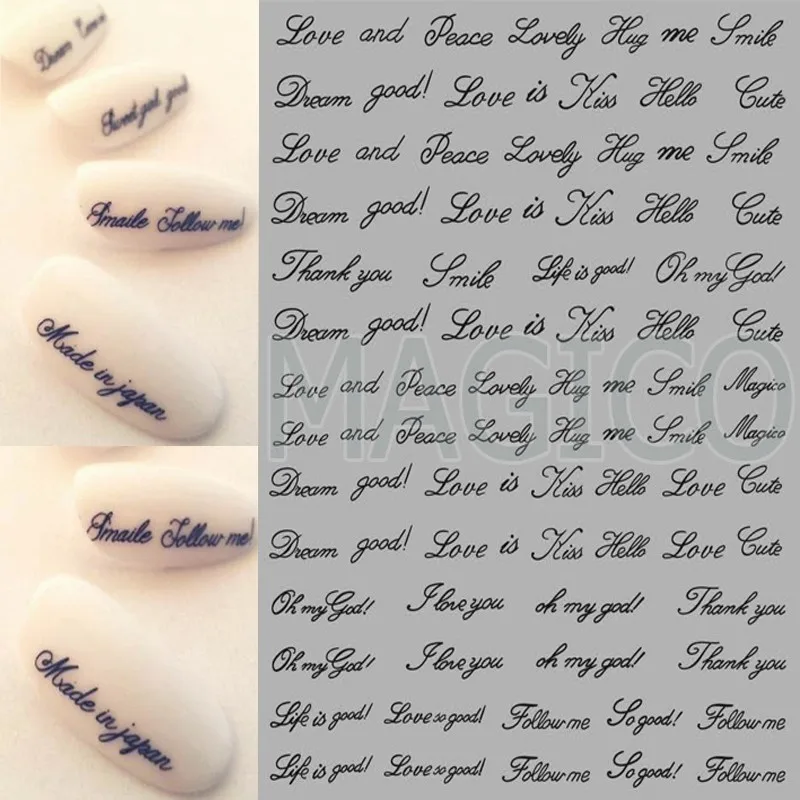 Dream
Sweet girl good
Smaile Follow me!
Made in japan
Smaile Follow me!
Made in japan
Love and Peace Lovely Hug me Smile
Dream good! Love is Kiss Hello Cute
Love and Peace Lovely Hug me Smile
Dream good! Love is Kiss Hello Cute
Thank you Smile Life is good! Oh my God!
Dream good! Love is Kiss Hello Cute
MAGICO
Love and Peace Lovely Hug me Smile Magico
Love and Peace Lovely Hug me Smile Magico
Dream good! Love is Kiss Hello Love Cute
Dream good! Love is Kiss Hello Love Cute
Oh my God! I love you oh my god! Thank you
Oh my God! I love you oh my god! Thank you
Life is good! Love so good! Follow me So good! Follow me
Life is good! Love so good! Follow me So good! Follow me